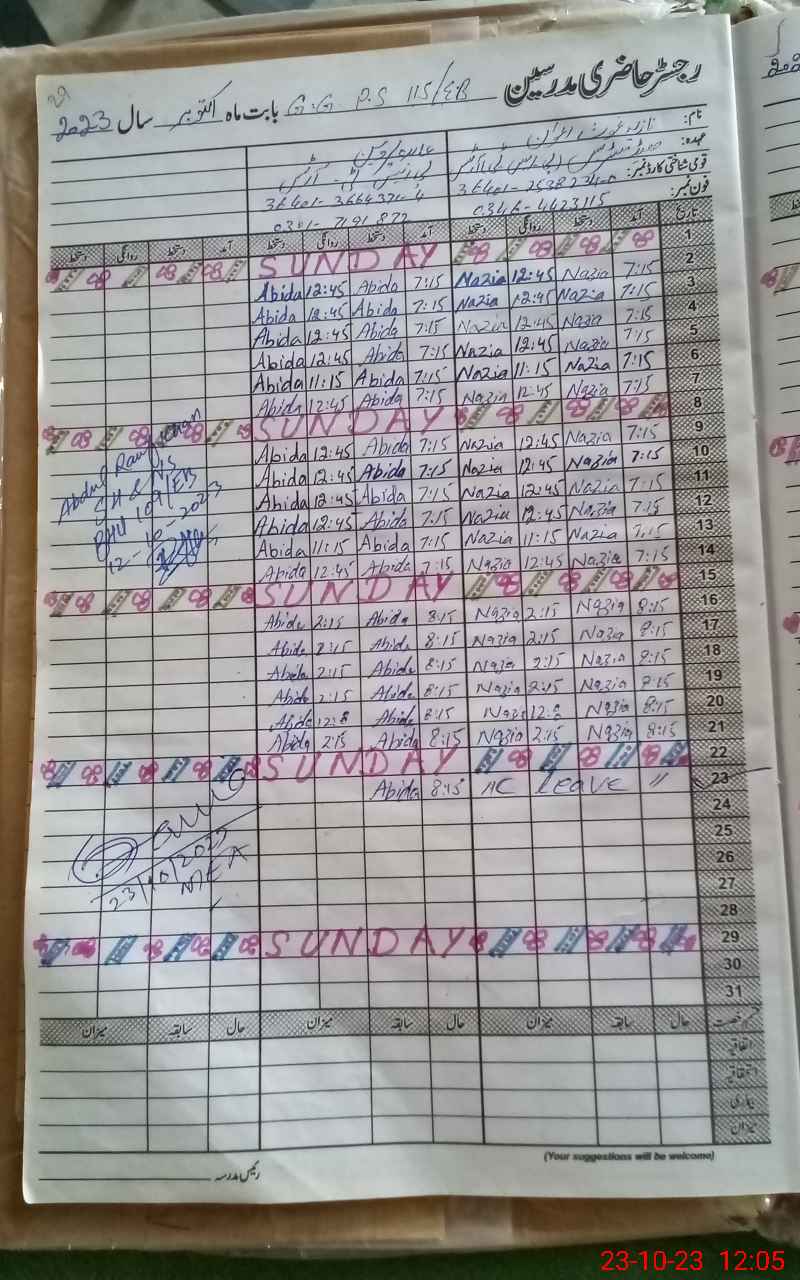 رجسٹر حاضری مدرسین G.G. P.S 115/EB بابت ماہ اکتوبر سال 2023
نام:
عہدہ:
قومی شناختی کارڈ نمبر:
فون نمبر: 0346-4423115
تاریخ آمد دستخط روانگی دستخط آمد دستخط روانگی دستخط آمد دستخط روانگی دستخط
1 SUNDAY
2 7:15 Nazia 12:45 Nazia 7:15 Abida 12:45 Abida
3 7:15 Nazia 12:45 Nazia 7:15 Abida 12:45 Abida
4 7:15 Nazia 12:45 Nazia 7:15 Abida 12:45 Abida
5 7:15 Nazia 12:45 Nazia 7:15 Abida 12:45 Abida
6 7:15 Nazia 11:15 Nazia 7:15 Abida 11:15 Abida
7 7:15 Nazia 12:45 Nazia 7:15 Abida 12:45 Abida
8 SUNDAY
9 7:15 Nazia 12:45 Nazia 7:15 Abida 12:45 Abida
10 7:15 Nazia 12:45 Nazia 7:15 Abida 12:45 Abida
11 7:15 Nazia 12:45 Nazia 7:15 Abida 12:45 Abida
12 7:15 Nazia 12:45 Nazia 7:15 Abida 12:45 Abida
13 7:15 Nazia 11:15 Nazia 7:15 Abida 11:15 Abida
14 7:15 Nazia 12:45 Nazia 7:15 Abida 12:45 Abida
Abdul Rauf
BHU 109/EB
12-10-2023
15 SUNDAY
16 8:15 Nazia 2:15 Nazia 8:15 Abida 2:15 Abida
17 8:15 Nazia 2:15 Nazia 8:15 Abida 2:15 Abida
18 8:15 Nazia 2:15 Nazia 8:15 Abida 2:15 Abida
19 8:15 Nazia 2:15 Nazia 8:15 Abida 2:15 Abida
20 8:15 Nazia Nazia 8:15 Abida Abida
21 8:15 Nazia 2:15 Nazia 8:15 Abida 2:15 Abida
22 SUNDAY
23 〃 Leave 8:15 Abida
24
25
26
27
28
23/10/2023
MEA
29 SUNDAY
30
31
قسم رخصت حال سابقہ میزان حال سابقہ میزان حال سابقہ میزان
اتفاقیہ
استحقاقیہ
بیماری
میزان
(Your suggestions will be welcome)
رئیس مدرسہ
23-10-23 12:05